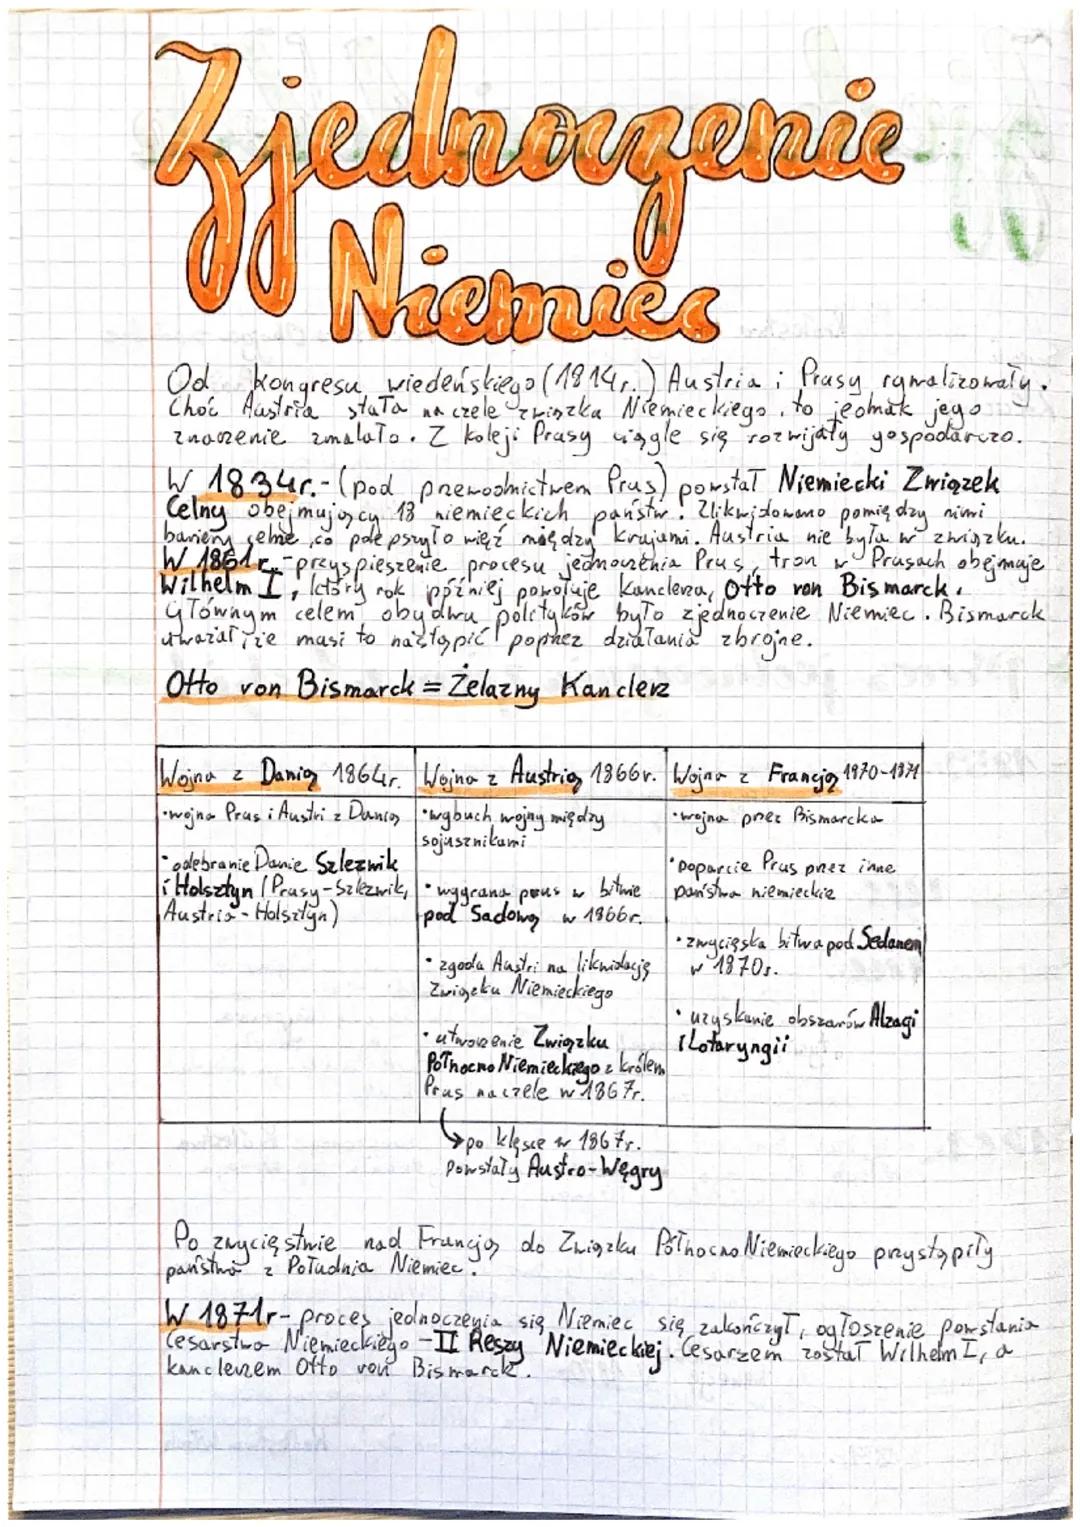 Zjednoczenie
Niemiec
Od kongresu wiedeńskiego (1814r.) Austria i Prusy rywalizowały.
Choć Austria stała na czele związku Niemieckiego, to jednak jego
znaczenie zmalało. Z kolei Prusy ciągle się rozwijały gospodarczo.
W 1834r.- (pod przewodnictwem Prus) powstał Niemiecki Związek
Celny obejmujący 18 niemieckich państw. Zlikwidowano pomiędzy nimi
bariery celne, co polepszyło więź między krajami. Austria nie była w związku.
W 1861r.- przyspieszenie procesu jednoczenia Prus, tron w Prusach obejmuje
Wilhelm I, który rok później powołuje kanclerza, Otto von Bismarck.
Głównym celem obydwu polityków było zjednoczenie Niemiec. Bismarck
uważał, że musi to nastąpić poprzez działania zbrojne.
Otto von Bismarck = Żelazny Kanclerz
Wojna z Danią 1864r. Wojna z Austrią 1866r. Wojna z Francją 1870-1871
•wojna Prus i Austri z Danią
•odebranie Danie Szlezwik
i Holsztyn (Prusy-Szlezwik,
Austria-Holsztyn)
•wybuch wojny między
sojusznikami
•wygrana prus w bitwie
pod Sadową w 1866r.
•zgoda Austri na likwidację
Związku Niemieckiego
•utworzenie Związku
Północno Niemieckiego z królem
Prus na czele w 1867r.
•wojna przez Bismarcka
•Poparcie Prus przez inne
państwa niemieckie
•zwycięska bitwa pod Sedanem
w 1870r.
•uzyskanie obszarów Alzacji
i Lotaryngii
po klęsce w 1867r.
Powstały Austro-Węgry
Po zwycięstwie nad Francją do Związku Północno Niemieckiego przystąpiły
państwa z Południa Niemiec.
W 1871r- proces jednoczenia się Niemiec się zakończył, ogłoszenie powstania
Cesarstwa Niemieckiego - II Rzeszy Niemieckiej. Cesarzem został Wilhelm I, a
kanclerzem Otto von Bismarck.